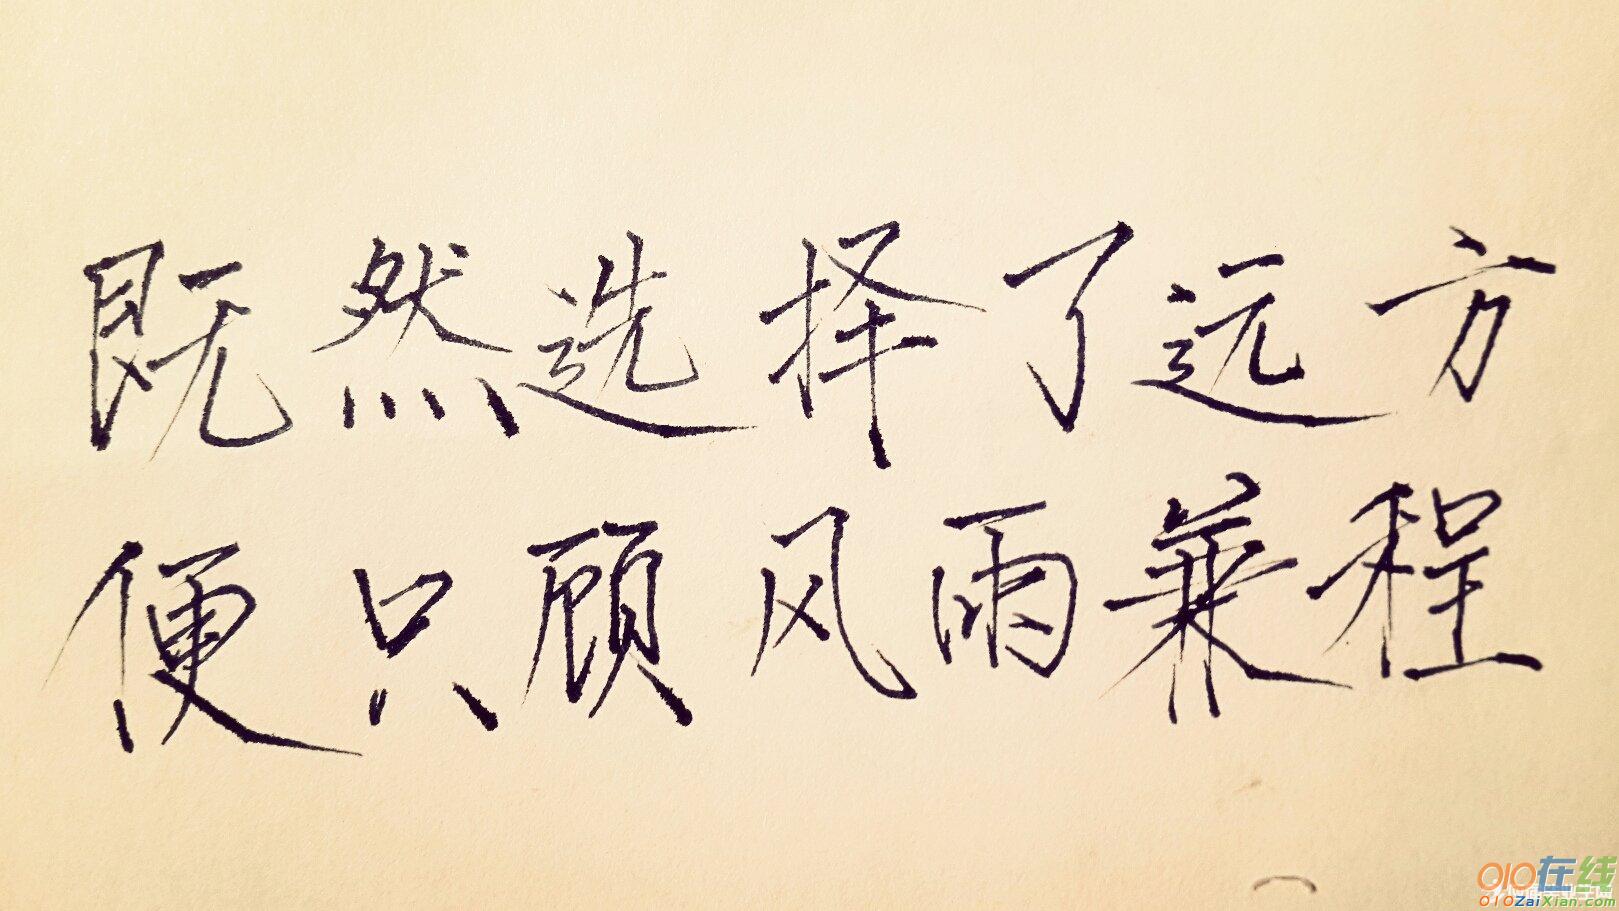 既然选择了远方
便只顾风雨兼程
010在线
010ZaiXian.com